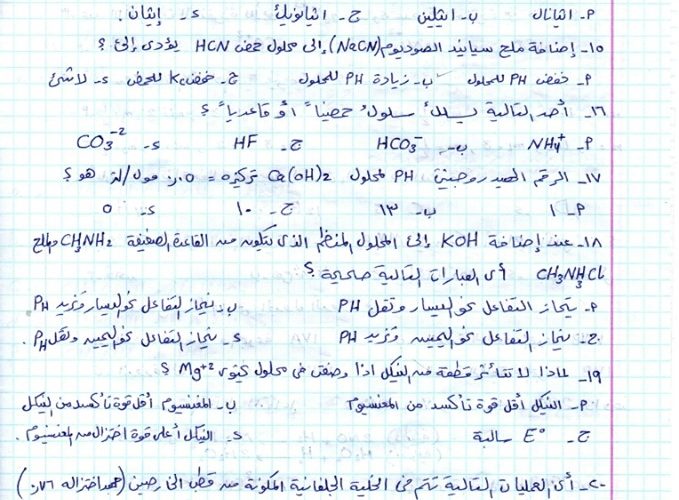 P- ايثانال ب- ايثلين ج- ايثانويك د- إيثان.
١٥- إضافة ملح سيانيد الصوديوم (NaCN) إلى محلول حمض HCN يؤدي إلى ؟
P- خفض PH للمحلول ب- زيادة PH للمحلول ج- خفض K للحمض د- لاشئ
١٦- أحد التالية يسلك سلوكاً حمضياً أو قاعدياً ؟
P- NH4+ ب- HCO3- ج- HF د- CO3-2
١٧- الرقم الهيدروجيني PH لمحلول Ca(OH)2 تركيزه = ٠.٠٥ مول/لتر هو ؟
P- ١ ب- ١٣ ج- ١٠ د- ٥
١٨- عند إضافة KOH إلى المحلول المنظم الذي يتكون من القاعدة الضعيفة CH3NH2 والملح
CH3NH3Cl أي العبارات التالية صحيحة ؟
P- ينحاز التفاعل نحو اليسار وتقل PH ب- ينحاز التفاعل نحو اليسار وتزيد PH
ج- ينحاز التفاعل نحو اليمين وتزيد PH د- ينحاز التفاعل نحو اليمين وتقل PH.
١٩- لماذا لا تتأثر قطعة من النيكل اذا وضعت في محلول يحتوي Mg+2 ؟
P- النيكل أقل قوة تأكسد من المغنسيوم ب- المغنسيوم أقل قوة تأكسد من النيكل
ج- E° سالبة د- النيكل أعلى قوة اختزال من المغنسيوم.
٢٠- أي العمليات التالية تتم في الخلية الجلفانية المكونة من قطب الخارصين (جهد اختزاله ٠.٧٦)